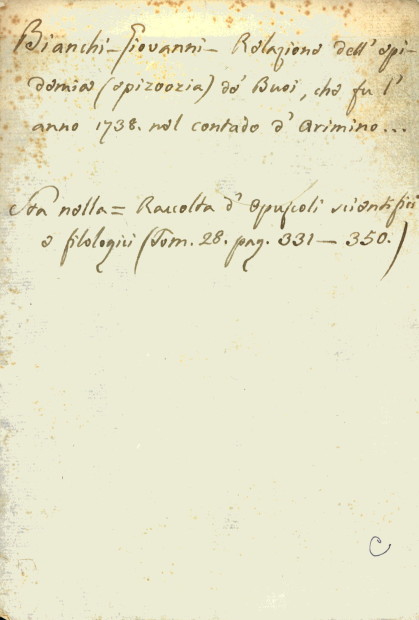 Bianchi-Giovanni- Relazione dell' epi-
demia (epizoozia) de' Buoi, che fu l'
anno 1738. nel contado d' Arimino...
Sta nella = Raccolta d' Opuscoli scientifici
e filologici (Tom. 28. pag. 331 — 350.)
C